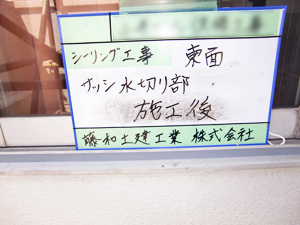 シーリング工事 東面
サッシ水切り部
施工後
藤和土建工業 株式会社